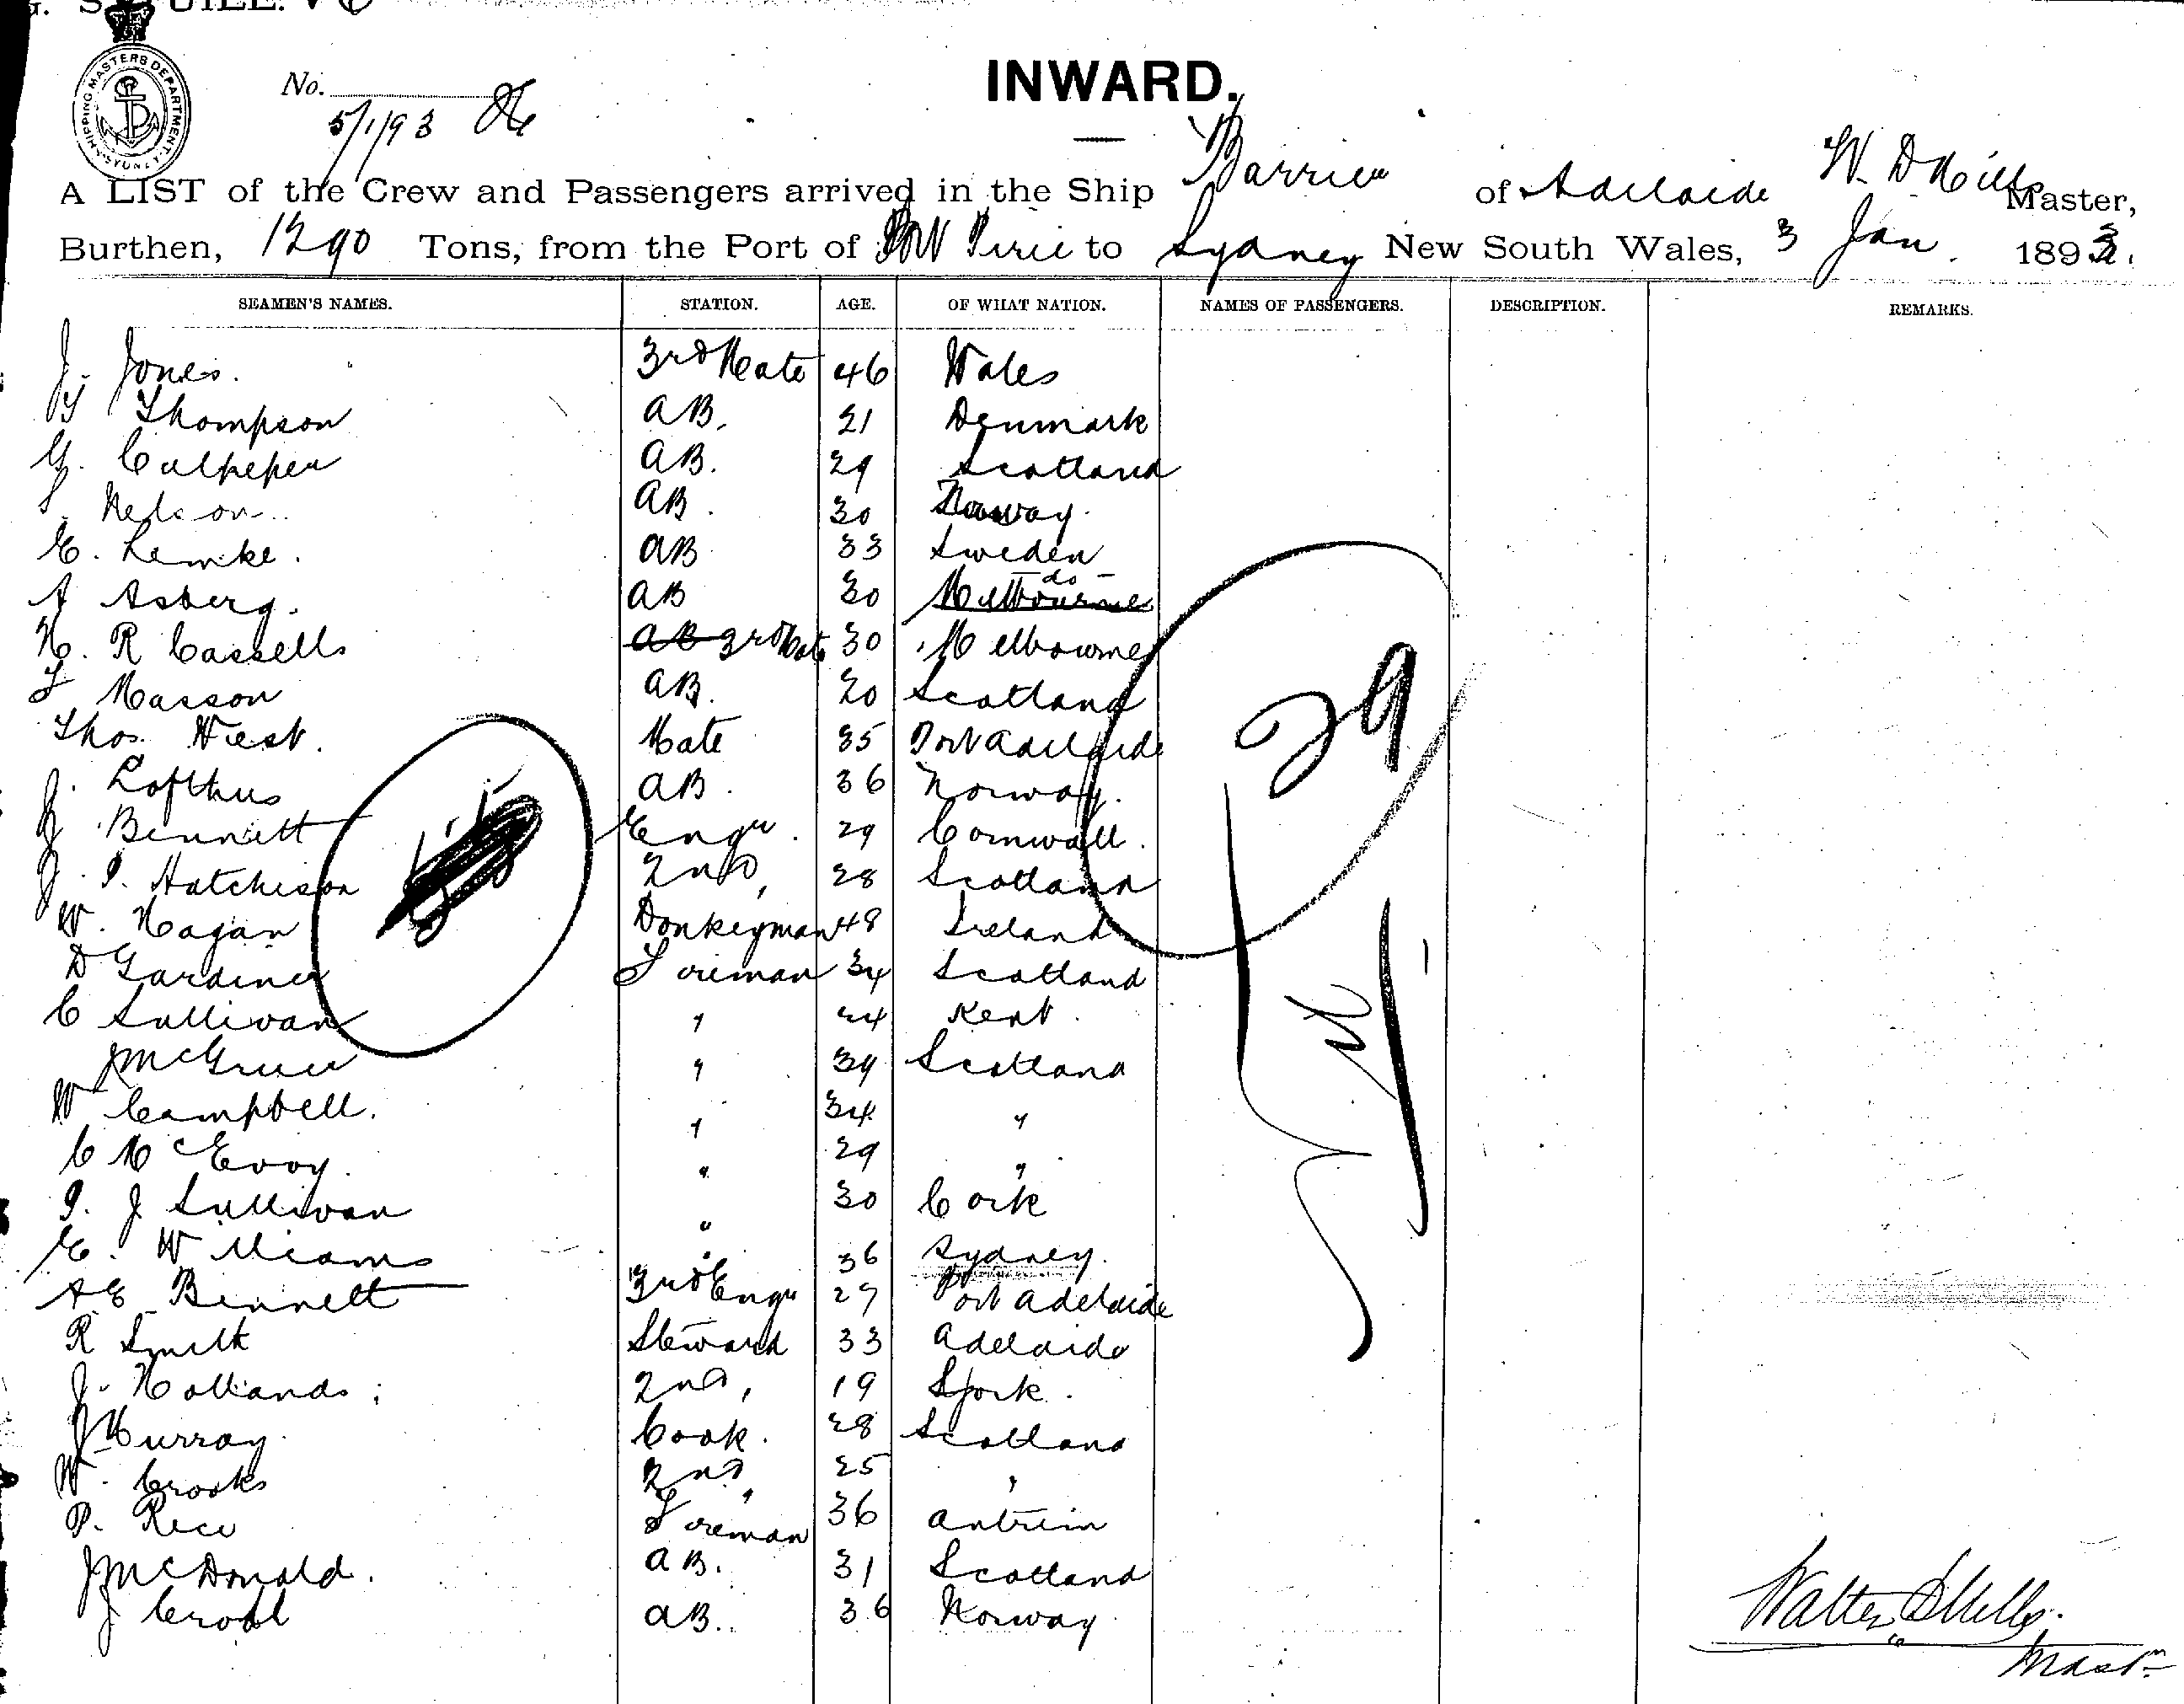 SHIPPING MASTERS DEPARTMENT. SYDNEY
No.
5/1/93
INWARD.
A LIST of the Crew and Passengers arrived in the Ship Barrier of Adelaide W. D Mills Master,
Burthen, 1290 Tons, from the Port of Port Pirie to Sydney New South Wales, 3 Jan. 1893.
SEAMEN'S NAMES. STATION. AGE. OF WHAT NATION. NAMES OF PASSENGERS. DESCRIPTION. REMARKS.
J. Jones. 3rd Mate 46 Wales
Thompson AB. 21 Denmark
G. Culpeper AB. 29 Scotland
Nelson AB. 30 Norway.
E. Lemke. AB 33 Sweden
A Asberg. AB 30 Melbourne - do -
H. R Cassells AB 3rd Mate 30 Melbourne
Masson AB. 20 Scotland
Thos. West. Mate 35 Port Adelaide
J. Lofthus AB. 36 Norway.
J Bennett Engr. 29 Cornwall.
J. P. Hutchison 2nd, 28 Scotland
W. Hagan Donkeyman 48 Ireland
D Gardiner Fireman 34 Scotland
C Sullivan " 44 Kent.
" 39 Scotland
W Campbell. " 34 "
C McEvoy. " 29 "
P. J Sullivan " 30 Cork
E. Williams " 36 Sydney.
AE Bennett 3rd Engr 27 Port Adelaide
R Smith Steward 33 Adelaide
J. Hollands; 2nd, 19
J Murray Cook. 28 Scotland
W. Crooks 2nd " 25 "
P. Rice Fireman 36 Antrim
J McDonald. AB. 31 Scotland
J AB. 36 Norway
29
Walter D Mills.
Mastr